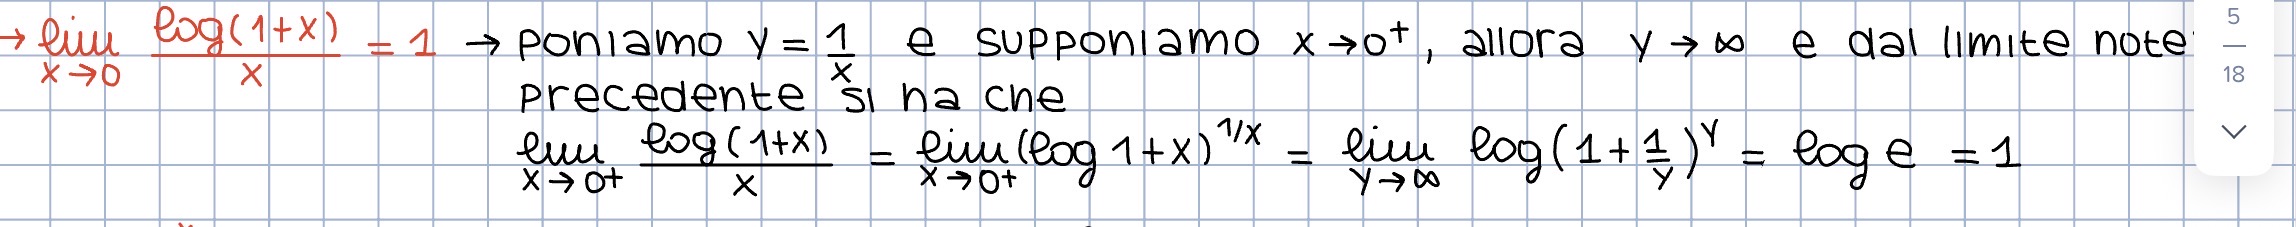 → lim x→0 log(1+x)/x = 1 → poniamo y = 1/x e supponiamo x→0⁺, allora y→∞ e dal limite note
precedente si ha che
lim x→0⁺ log(1+x)/x = lim x→0⁺ (log 1+x)^1/x = lim y→∞ log(1+1/y)^y = log e = 1
5
18